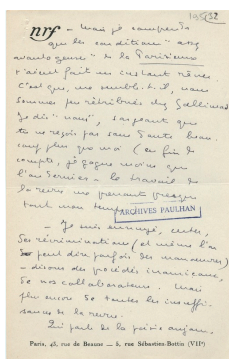 195[52
nrf
- Mais je comprends
que les conditions "assez
avantageuses" de la Parisienne
t'aient fait un instant rêver.
C'est que, me semble-t-il, nous
sommes peu rétribués chez Gallimard
Je dis "nous", supposant que
tu ne reçois pas sans doute beau-
coup plus que moi (en fin de
compte, je gagne moins que
- le travail de
la revue me prenant presque
tout mon temps
ARCHIVES PAULHAN
- Je suis ennuyé, certes,
des récriminations (et même l'on
peut dire parfois des manœuvres)
- disons des procédés inamicaux,
de nos collaborateurs. Mais
plus encore de toutes les insuffi-
sances de la revue.
Qui parle de la poésie aujourd.
Paris, 43, rue de Beaune — 5, rue Sébastien-Bottin (VIIᵉ)